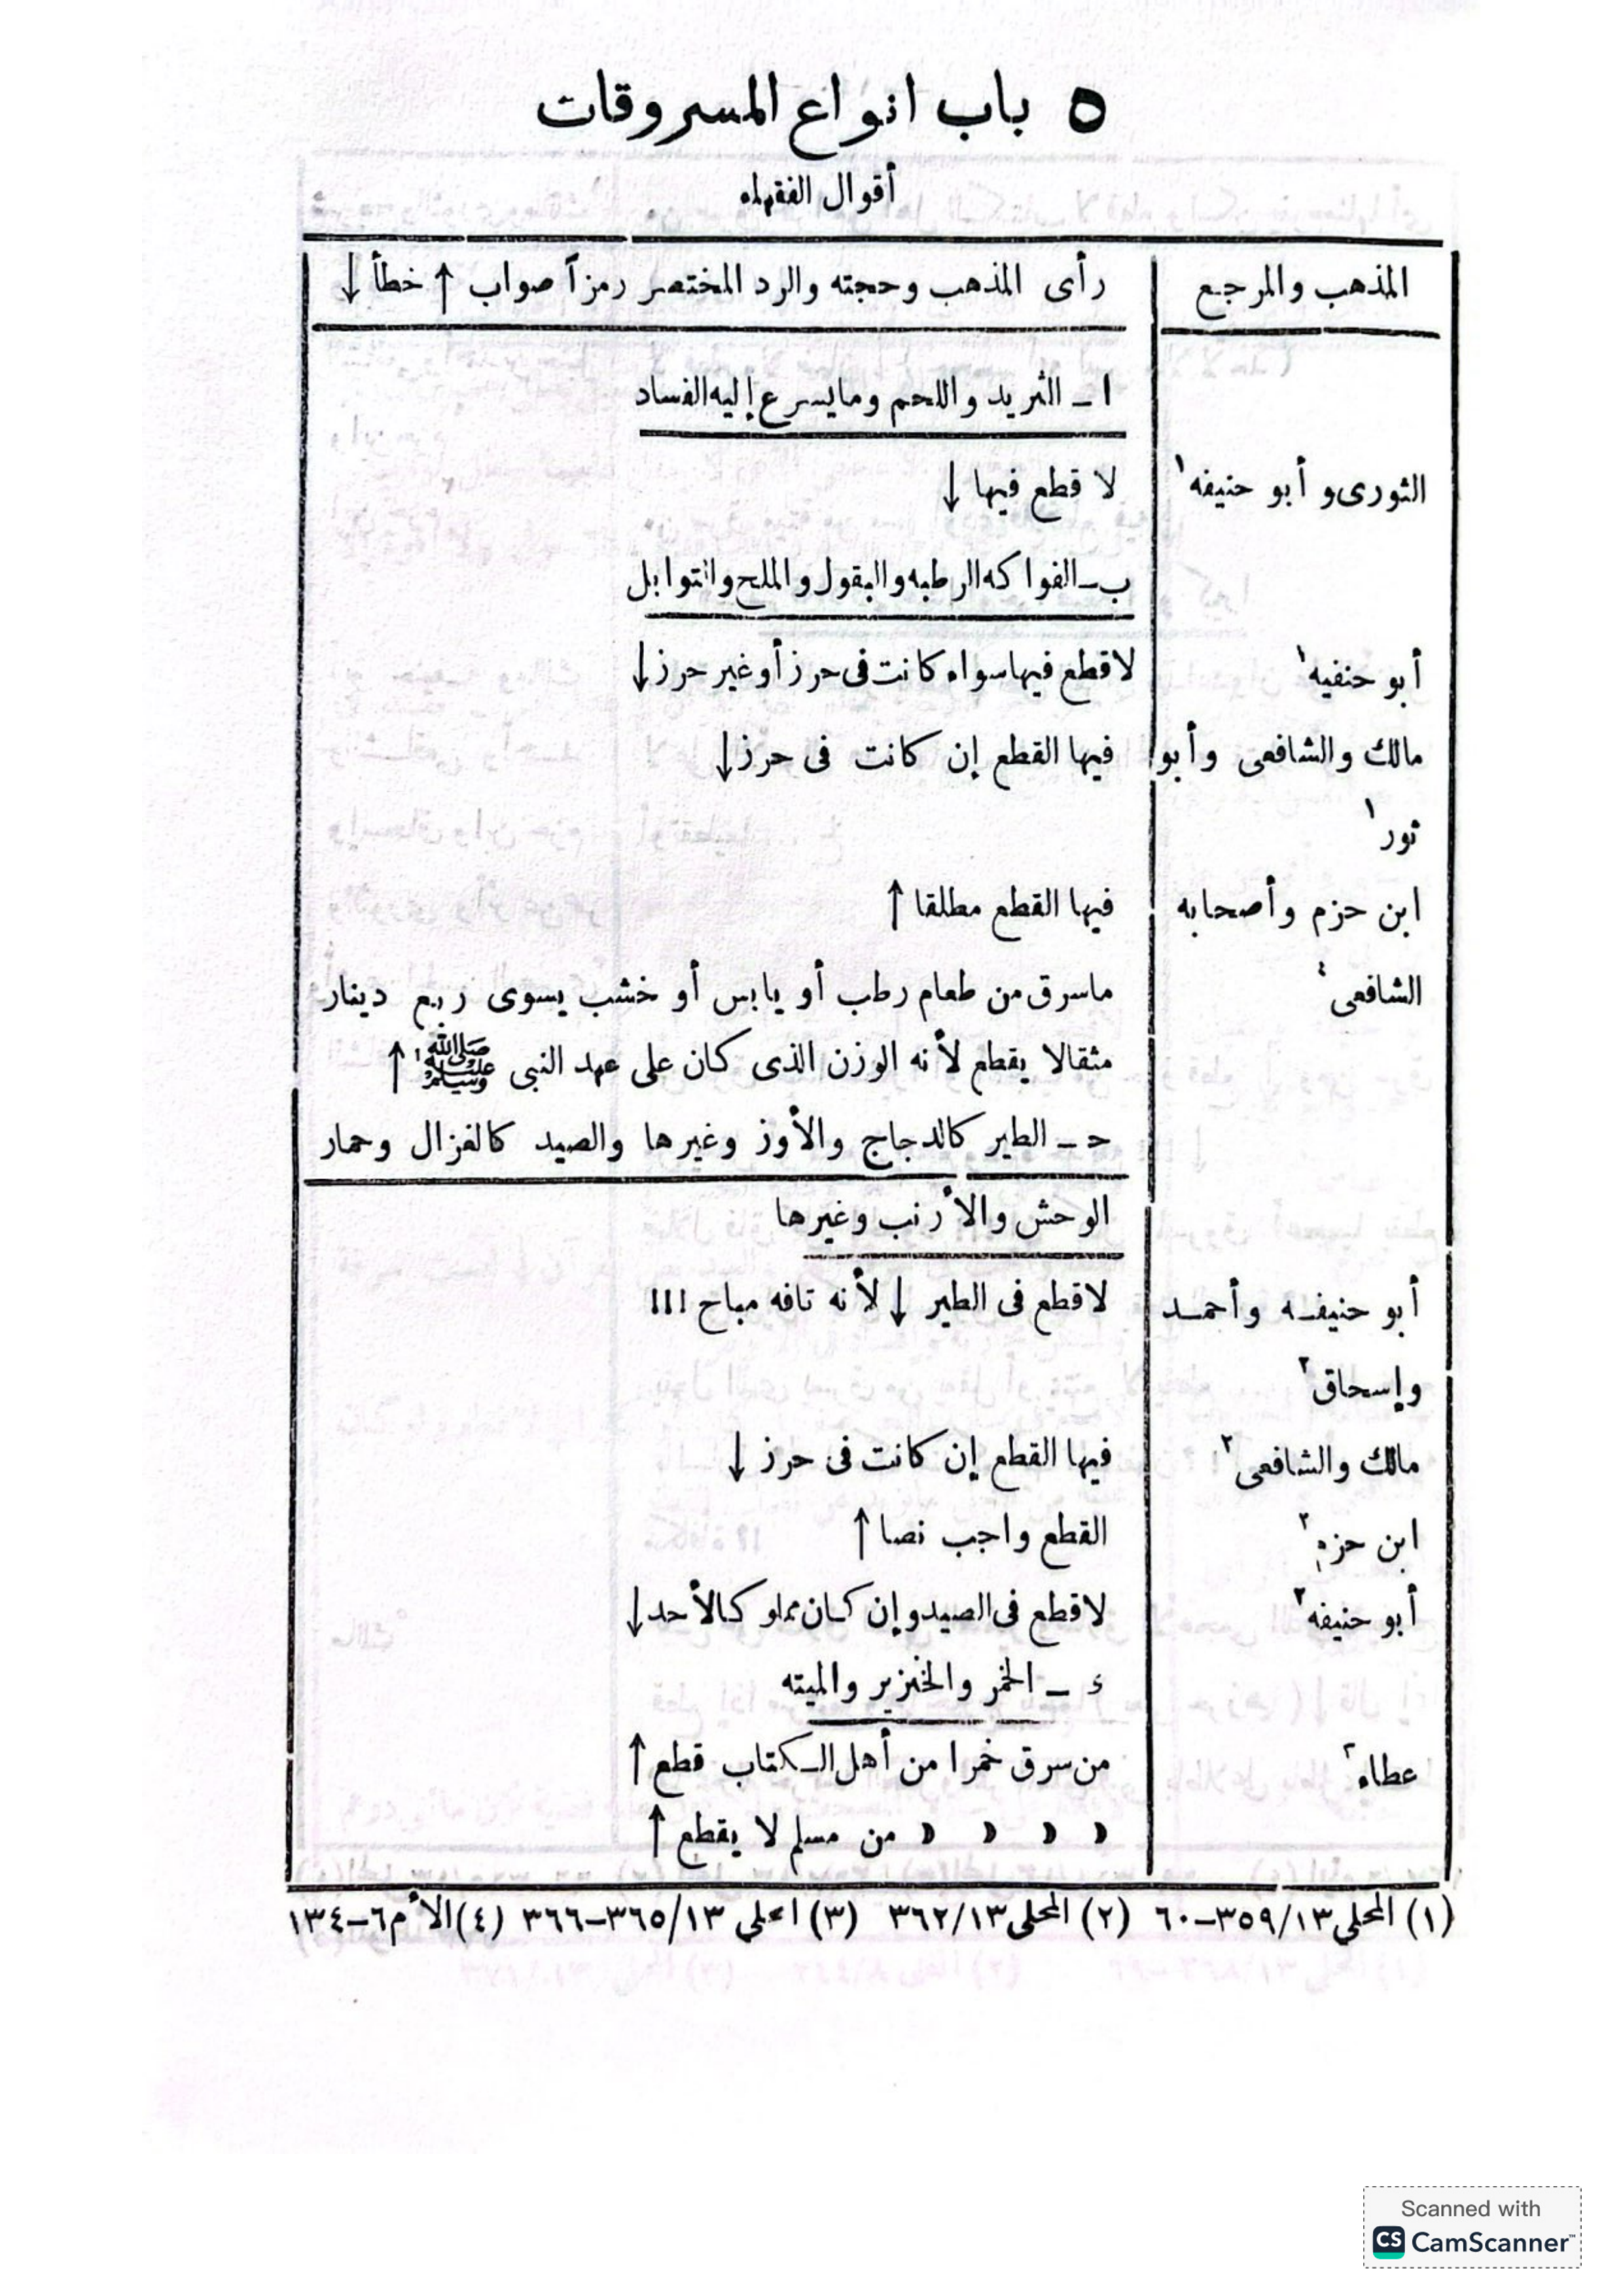 ٥ باب انواع المسروقات
أقوال الفقهاء
المذهب والمرجع رأى المذهب وحجته والرد المختصر رمزاً صواب ↑ خطأ ↓
ا ـ الثريد واللحم ومايسرع إليه الفساد
الثورى و أبو حنيفه ١ لا قطع فيها ↓
ب ـ الفواكه الرطبه والبقول والملح والتوابل
أبو حنفيه ١ لاقطع فيها سواء كانت فى حرز أو غير حرز ↓
مالك والشافعى وأبو فيها القطع إن كانت فى حرز ↓
ثور ١
ابن حزم وأصحابه فيها القطع مطلقا ↑
الشافعى ٤ ماسرق من طعام رطب أو يابس أو خشب يسوى ربع دينار
مثقالا يقطع لأنه الوزن الذى كان على عهد النبى ﷺ ١ ↑
حـ ـ الطير كالدجاج والأوز وغيرها والصيد كالغزال وحمار
الوحش والأرنب وغيرها
أبو حنيفـه وأحمـد لاقطع فى الطير ↓ لأنه تافه مباح !!!
وإسحاق ٢
مالك والشافعى ٢ فيها القطع إن كانت فى حرز ↓
ابن حزم ٢ القطع واجب نصا ↑
أبو حنيفه ٢ لاقطع فى الصيد وإن كـان مملوكـا لأحد ↓
ء ـ الخمر والخنزير والميته
عطاء ٣ من سرق خمرا من أهل الـكتاب قطع ↑
» » » » من مسلم لا يقطع ↑
(١) المحلي ١٣/٣٥٩ـ٦٠ (٢) المحلى ١٣/٣٦٢ (٣) المحلي ١٣/٣٦٥ـ٣٦٦ (٤) الأم ٦ـ١٣٤
Scanned with
CS CamScanner™